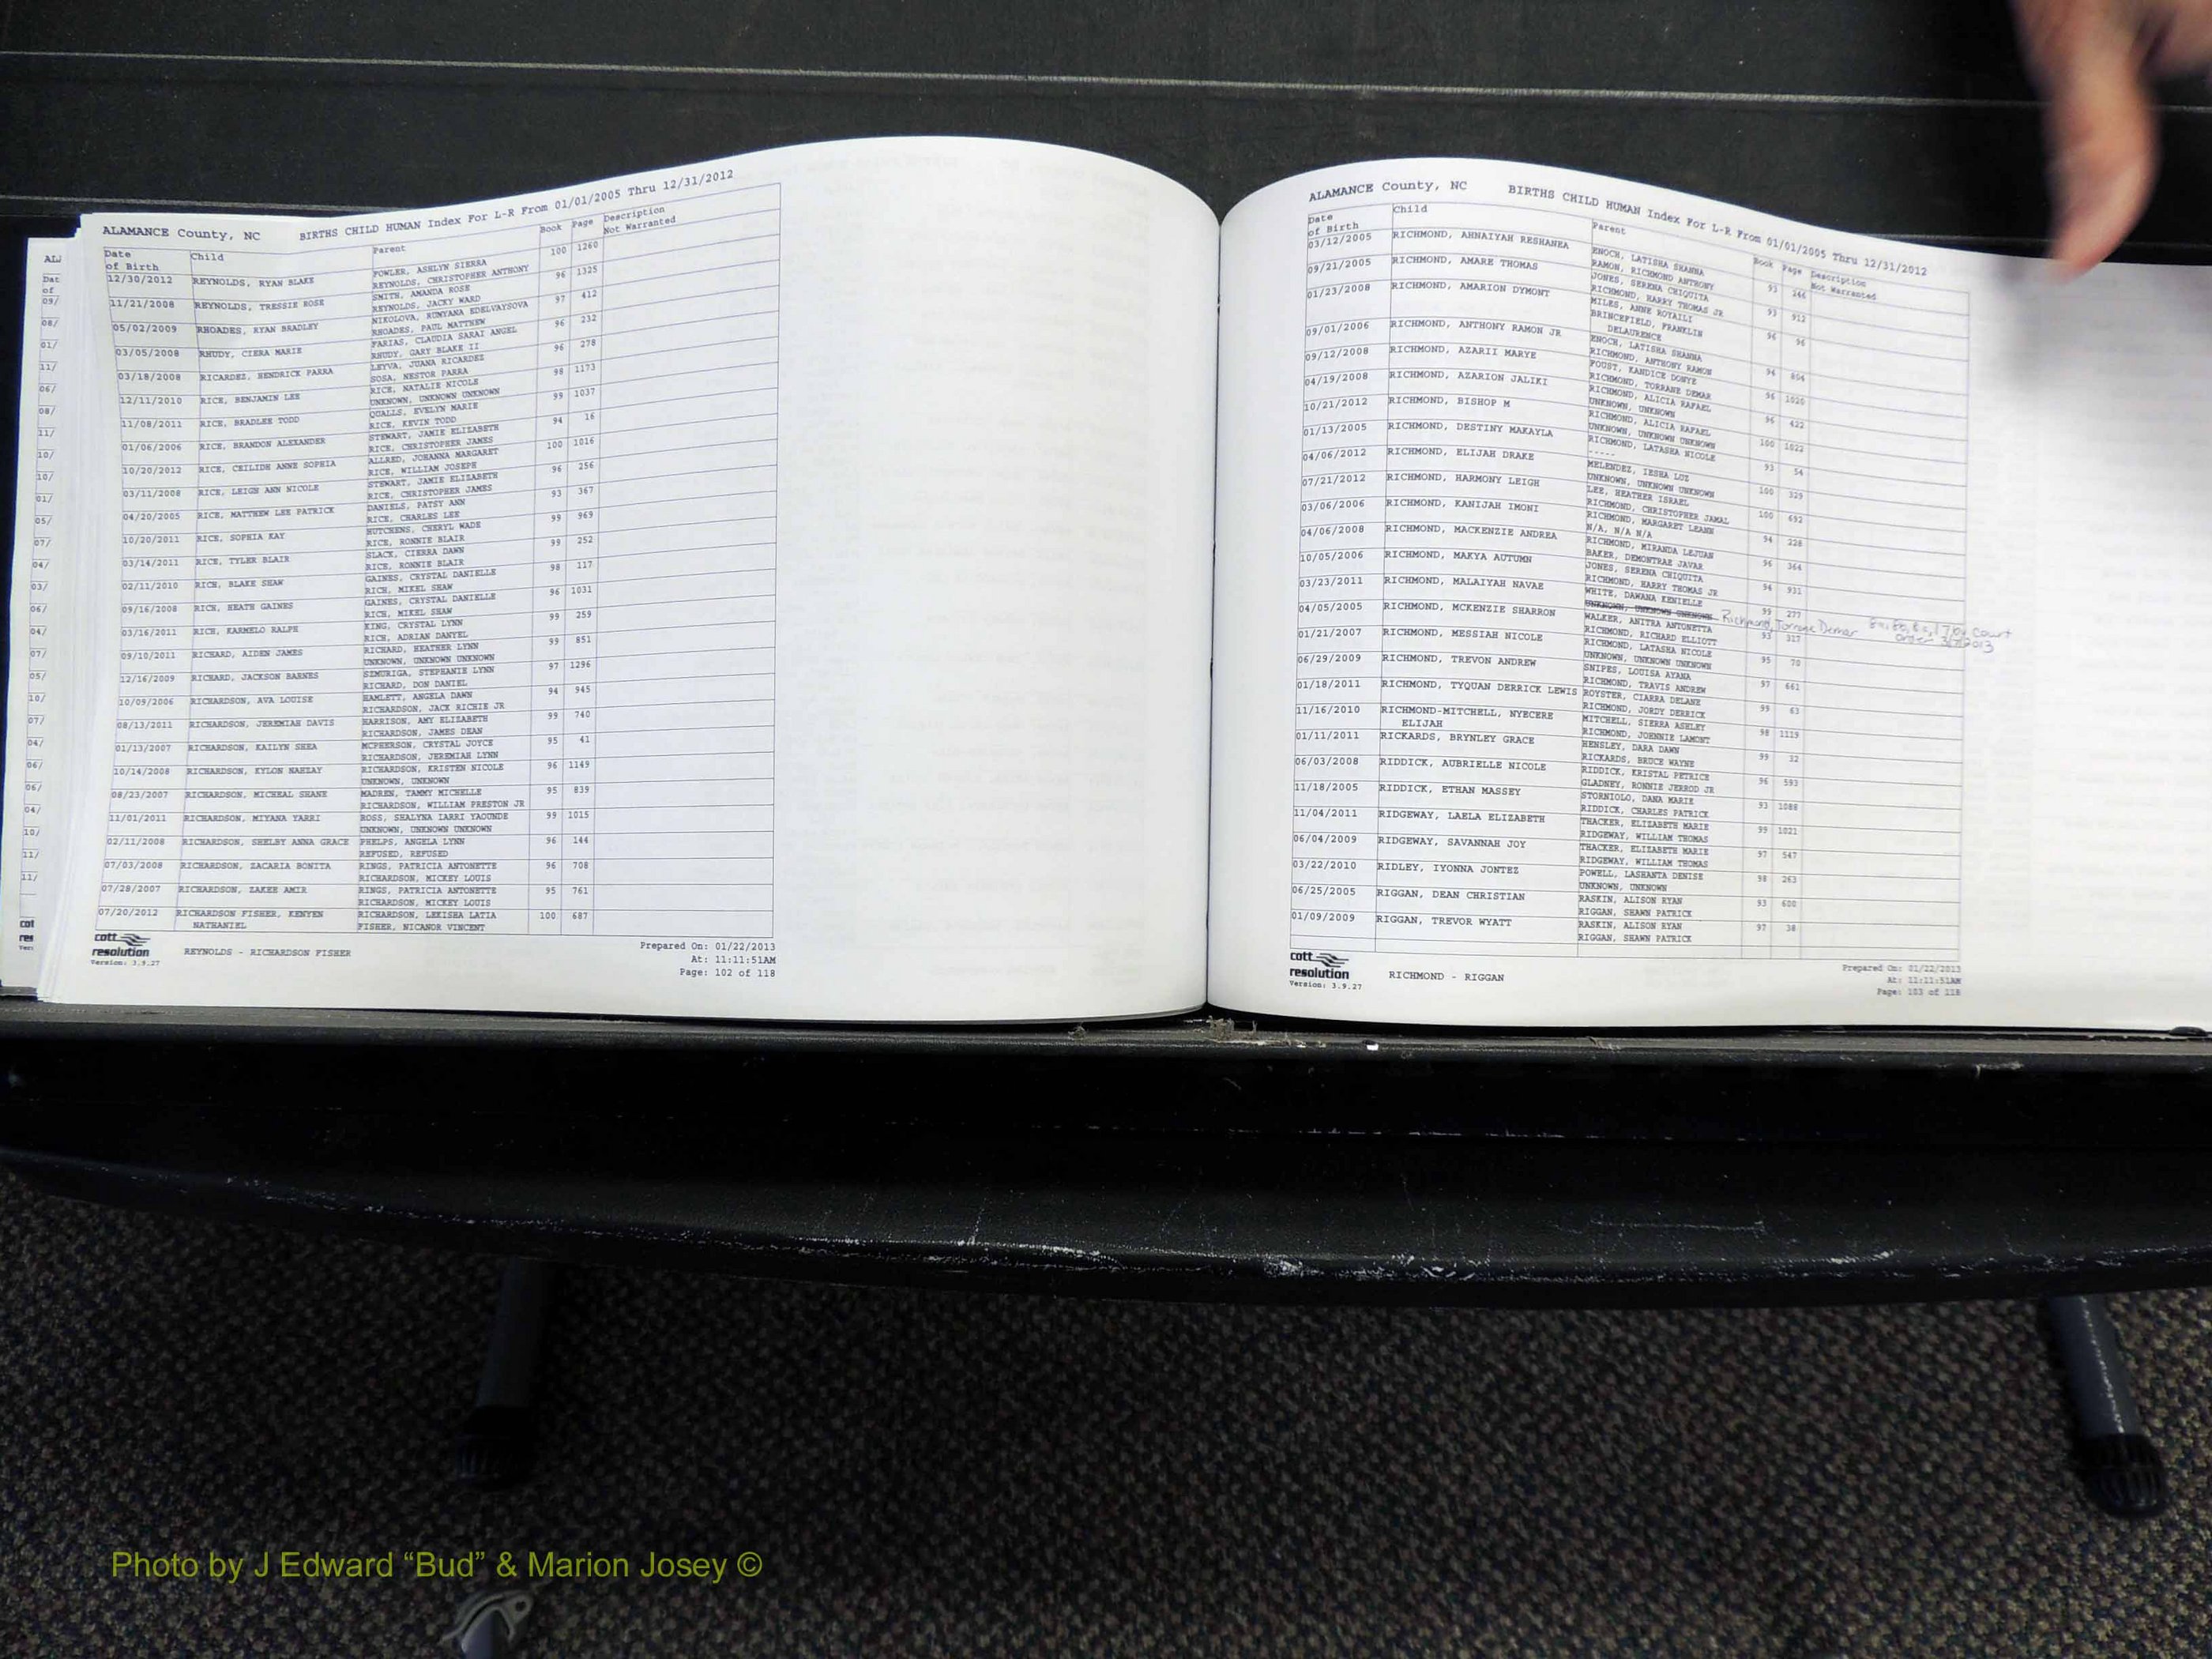 ALAMANCE County, NC BIRTHS CHILD HUMAN Index For L-R From 01/01/2005 Thru 12/31/2012
Date of Birth Child Parent Book Page Description Not Warranted
12/30/2012 REYNOLDS, RYAN BLAKE FOWLER, ASHLYN SIERRA 100 1260
REYNOLDS, CHRISTOPHER ANTHONY
11/21/2008 REYNOLDS, TRESSIE ROSE SMITH, AMANDA ROSE 96 1325
REYNOLDS, JACKY WARD
05/02/2009 RHOADES, RYAN BRADLEY NIKOLOVA, RUMYANA EDELVAYSOVA 97 412
RHOADES, PAUL MATTHEW
03/05/2008 RHUDY, CIERA MARIE FARIAS, CLAUDIA SARAI ANGEL 96 232
RHUDY, GARY BLAKE II
03/18/2008 RICARDEZ, HENDRICK PARRA LEYVA, JUANA RICARDEZ 96 278
SOSA, NESTOR PARRA
12/11/2010 RICE, BENJAMIN LEE RICE, NATALIE NICOLE 98 1173
UNKNOWN, UNKNOWN UNKNOWN
11/08/2011 RICE, BRADLEE TODD QUALLS, EVELYN MARIE 99 1037
RICE, KEVIN TODD
01/06/2006 RICE, BRANDON ALEXANDER STEWART, JAMIE ELIZABETH 94 16
RICE, CHRISTOPHER JAMES
10/20/2012 RICE, CEILIDE ANNE SOPHIA ALLRED, JOHANNA MARGARET 100 1016
RICE, WILLIAM JOSEPH
03/11/2008 RICE, LEIGH ANN NICOLE STEWART, JAMIE ELIZABETH 96 256
RICE, CHRISTOPHER JAMES
04/20/2005 RICE, MATTHEW LEE PATRICK DANIELS, PATSY ANN 93 367
RICE, CHARLES LEE
10/20/2011 RICE, SOPHIA KAY HUTCHENS, CHERYL WADE 99 969
RICE, RONNIE BLAIR
03/14/2011 RICE, TYLER BLAIR SLACK, CIERRA DAWN 99 252
RICE, RONNIE BLAIR
02/11/2010 RICH, BLAKE SHAW GAINES, CRYSTAL DANIELLE 98 117
RICH, MIKEL SHAW
09/16/2008 RICH, HEATH GAINES GAINES, CRYSTAL DANIELLE 96 1031
RICH, MIKEL SHAW
03/16/2011 RICH, KARMELO RALPH KING, CRYSTAL LYNN 99 259
RICH, ADRIAN DANYEL
09/10/2011 RICHARD, AIDEN JAMES RICHARD, HEATHER LYNN 99 851
UNKNOWN, UNKNOWN UNKNOWN
12/16/2009 RICHARD, JACKSON BARNES SZMURIGA, STEPHANIE LYNN 97 1296
RICHARD, DON DANIEL
10/09/2006 RICHARDSON, AVA LOUISE HAMLETT, ANGELA DAWN 94 945
RICHARDSON, JACK RICHIE JR
08/13/2011 RICHARDSON, JEREMIAH DAVIS HARRISON, AMY ELIZABETH 99 740
RICHARDSON, JAMES DEAN
01/13/2007 RICHARDSON, KAILYN SHEA MCPHERSON, CRYSTAL JOYCE 95 41
RICHARDSON, JEREMIAH LYNN
10/14/2008 RICHARDSON, KYLON NAHZAY RICHARDSON, KRISTEN NICOLE 96 1149
UNKNOWN, UNKNOWN
08/23/2007 RICHARDSON, MICHEAL SHANE MADREN, TAMMY MICHELLE 95 839
RICHARDSON, WILLIAM PRESTON JR
11/01/2011 RICHARDSON, MIYANA YARRI ROSS, SHALYNA LARRI YAOUNDE 99 1015
UNKNOWN, UNKNOWN UNKNOWN
02/11/2008 RICHARDSON, SHELBY ANNA GRACE PHELPS, ANGELA LYNN 96 144
REFUSED, REFUSED
07/03/2008 RICHARDSON, ZACARIA BONITA RINGS, PATRICIA ANTONETTE 96 708
RICHARDSON, MICKEY LOUIS
07/28/2007 RICHARDSON, ZAKEE AMIR RINGS, PATRICIA ANTONETTE 95 761
RICHARDSON, MICKEY LOUIS
07/20/2012 RICHARDSON FISHER, KENYEN RICHARDSON, LEKISHA LATIA 100 687
NATHANIEL FISHER, NICANOR VINCENT
cott resolution
Version: 3.9.27
REYNOLDS - RICHARDSON FISHER
Prepared On: 01/22/2013
At: 11:11:51AM
Page: 102 of 118
ALAMANCE County, NC BIRTHS CHILD HUMAN Index For L-R From 01/01/2005 Thru 12/31/2012
Date of Birth Child Parent Book Page Description Not Warranted
03/12/2005 RICHMOND, AHNAIYAH RESHANEA ENOCH, LATISHA SHANNA 93 246
RAMON, RICHMOND ANTHONY
09/21/2005 RICHMOND, AMARE THOMAS JONES, SERENA CHIQUITA 93 912
RICHMOND, HARRY THOMAS JR
01/23/2008 RICHMOND, AMARION DYMONT MILES, ANNE ROYAILI 96 96
BRINCEFIELD, FRANKLIN
DELAURENCE
09/01/2006 RICHMOND, ANTHONY RAMON JR ENOCH, LATISHA SHANNA 94 804
RICHMOND, ANTHONY RAMON
09/12/2008 RICHMOND, AZARII MARYE FOUST, KANDICE DONYE 96 1020
RICHMOND, TORRANE DEMAR
04/19/2008 RICHMOND, AZARION JALIKI RICHMOND, ALICIA RAFAEL 96 422
UNKNOWN, UNKNOWN
10/21/2012 RICHMOND, BISHOP M RICHMOND, ALICIA RAFAEL 100 1022
UNKNOWN, UNKNOWN UNKNOWN
01/13/2005 RICHMOND, DESTINY MAKAYLA RICHMOND, LATASHA NICOLE 93 54
-----
04/06/2012 RICHMOND, ELIJAH DRAKE MELENDEZ, IESHA LUZ 100 329
UNKNOWN, UNKNOWN UNKNOWN
07/21/2012 RICHMOND, HARMONY LEIGH LEE, HEATHER ISRAEL 100 692
RICHMOND, CHRISTOPHER JAMAL
03/06/2006 RICHMOND, KANIJAH IMONI RICHMOND, MARGARET LEANN 94 228
N/A, N/A N/A
04/06/2008 RICHMOND, MACKENZIE ANDREA RICHMOND, MIRANDA LEJUAN 96 364
BAKER, DEMONTRAE JAVAR
10/05/2006 RICHMOND, MAKYA AUTUMN JONES, SERENA CHIQUITA 94 931
RICHMOND, HARRY THOMAS JR
03/23/2011 RICHMOND, MALAIYAH NAVAE WHITE, DAWANA KENIELLE 99 277
UNKNOWN, UNKNOWN UNKNOWN Richmond, Torrane Demar Court order 3/7/2013
04/05/2005 RICHMOND, MCKENZIE SHARRON WALKER, ANITRA ANTONETTA 93 317
RICHMOND, RICHARD ELLIOTT
01/21/2007 RICHMOND, MESSIAH NICOLE RICHMOND, LATASHA NICOLE 95 70
UNKNOWN, UNKNOWN UNKNOWN
06/29/2009 RICHMOND, TREVON ANDREW SNIPES, LOUISA AYANA 97 661
RICHMOND, TRAVIS ANDREW
01/18/2011 RICHMOND, TYQUAN DERRICK LEWIS ROYSTER, CIARRA DELANE 99 63
RICHMOND, JORDY DERRICK
11/16/2010 RICHMOND-MITCHELL, NYECERE MITCHELL, SIERRA ASHLEY 98 1119
ELIJAH RICHMOND, JOHNNIE LAMONT
01/11/2011 RICKARDS, BRYNLEY GRACE HENSLEY, DARA DAWN 99 32
RICKARDS, BRUCE WAYNE
06/03/2008 RIDDICK, AUBRIELLE NICOLE RIDDICK, KRISTAL PETRICE 96 593
GLADNEY, RONNIE JERROD JR
11/18/2005 RIDDICK, ETHAN MASSEY STORNIOLO, DANA MARIE 93 1088
RIDDICK, CHARLES PATRICK
11/04/2011 RIDGEWAY, LAELA ELIZABETH THACKER, ELIZABETH MARIE 99 1021
RIDGEWAY, WILLIAM THOMAS
06/04/2009 RIDGEWAY, SAVANNAH JOY THACKER, ELIZABETH MARIE 97 547
RIDGEWAY, WILLIAM THOMAS
03/22/2010 RIDLEY, IYONNA JONTEZ POWELL, LASHANTA DENISE 98 263
UNKNOWN, UNKNOWN
06/25/2005 RIGGAN, DEAN CHRISTIAN RASKIN, ALISON RYAN 93 600
RIGGAN, SHAWN PATRICK
01/09/2009 RIGGAN, TREVOR WYATT RASKIN, ALISON RYAN 97 38
RIGGAN, SHAWN PATRICK
cott resolution
Version: 3.9.27
RICHMOND - RIGGAN
Prepared On: 01/22/2013
At: 11:11:51AM
Page: 103 of 118
Photo by J Edward “Bud” & Marion Josey ©